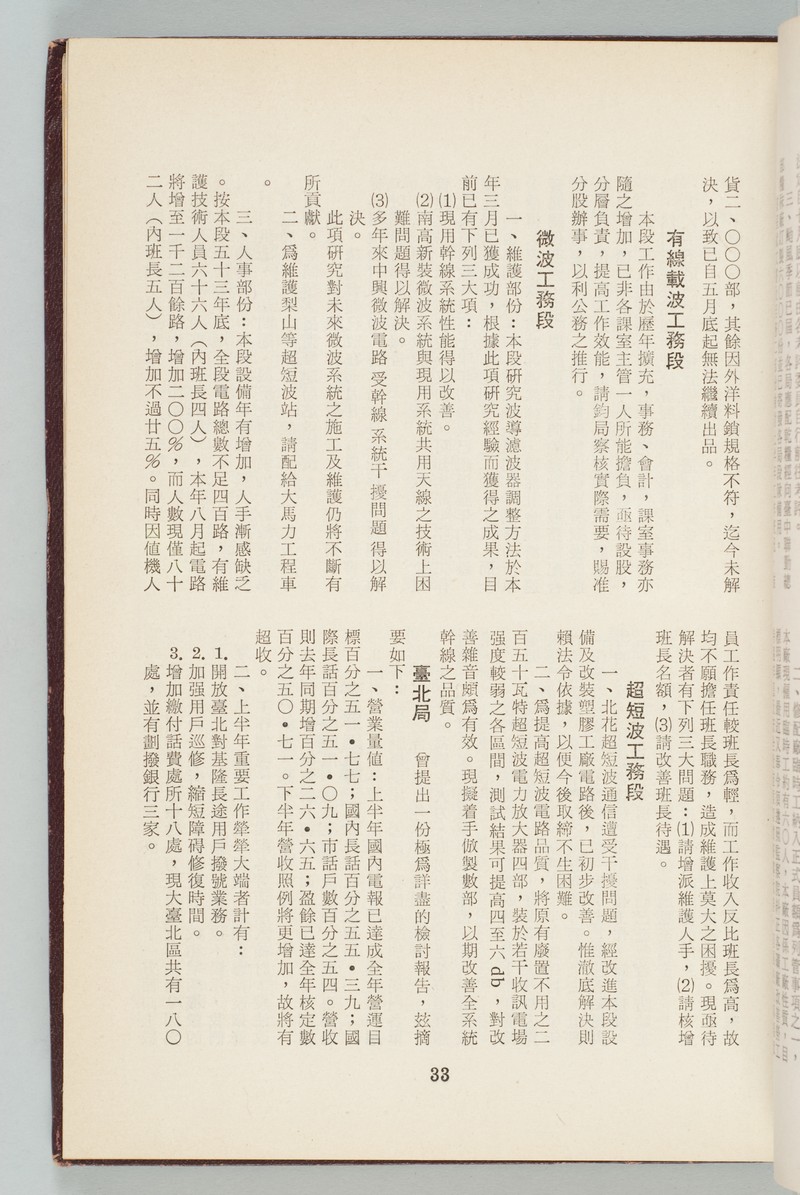 貨二、〇〇〇部，其餘因外洋料鎖規格不符，迄今未解
決，以致已自五月底起無法繼續出品。
有線載波工務段
本段工作由於歷年擴充，事務、會計，課室事務亦
隨之增加，已非各課室主管一人所能擔負，亟待設股，
分層負責，提高工作效能，請鈞局察核實際需要，賜准
分股辦事，以利公務之推行。
微波工務段
一、維護部份：本段研究波導濾波器調整方法於本
年三月已獲成功，根據此項研究經驗而獲得之成果，目
前已有下列三大項：
⑴現用幹線系統性能得以改善。
⑵南高新裝微波系統與現用系統共用天線之技術上困
難問題得以解決。
⑶多年來中興微波電路受幹線系統干擾問題得以解
決。
此項研究對未來微波系統之施工及維護仍將不斷有
所貢獻。
二、爲維護梨山等超短波站，請配給大馬力工程車
。
三、人事部份：本段設備年有增加，人手漸感缺乏
。按本段五十三年底，全段電路總數不足四百路，有維
護技術人員六十六人（內班長四人），本年八月起電路
將增至一千二百餘路，增加二〇〇％，而人數現僅八十
二人（內班長五人），增加不過廿五％。同時因値機人
員工作責任較班長爲輕，而工作收入反比班長爲高，故
均不願擔任班長職務，造成維護上莫大之困擾。現亟待
解決者有下列三大問題：⑴請增派維護人手，⑵請核增
班長名額，⑶請改善班長待遇。
超短波工務段
一、北花超短波通信遭受干擾問題，經改進本段設
備及改裝塑膠工廠電路後，已初步改善。惟澈底解決則
賴法令依據，以便今後取締不生困難。
二、爲提高超短波電路品質，將原有廢置不用之二
百五十瓦特超短波電力放大器四部，裝於若干收訊電場
强度較弱之各區間，測試結果可提高四至六db，對改
善雜音頗爲有效。現擬着手倣製數部，以期改善全系統
幹線之品質。
臺北局　曾提出一份極爲詳盡的檢討報告，玆摘
要如下：
一、營業量値：上半年國內電報已達成全年營運目
標百分之五一・七七；國內長話百分之五五・三九；國
際長話百分之五一・〇九；市話戶數百分之五四。營收
則去年同期增百分之二六・六五；盈餘已達全年核定數
百分之五〇・七一。下半年營收照例將更增加，故將有
超收。
二、上半年重要工作犖犖大端者計有：
1.開放臺北對基隆長途用戶撥號業務。
2.加强用戶巡修，縮短障碍修復時間。
3.增加繳付話費處所十八處，現大臺北區共有一八〇
處，並有劃撥銀行三家。
33